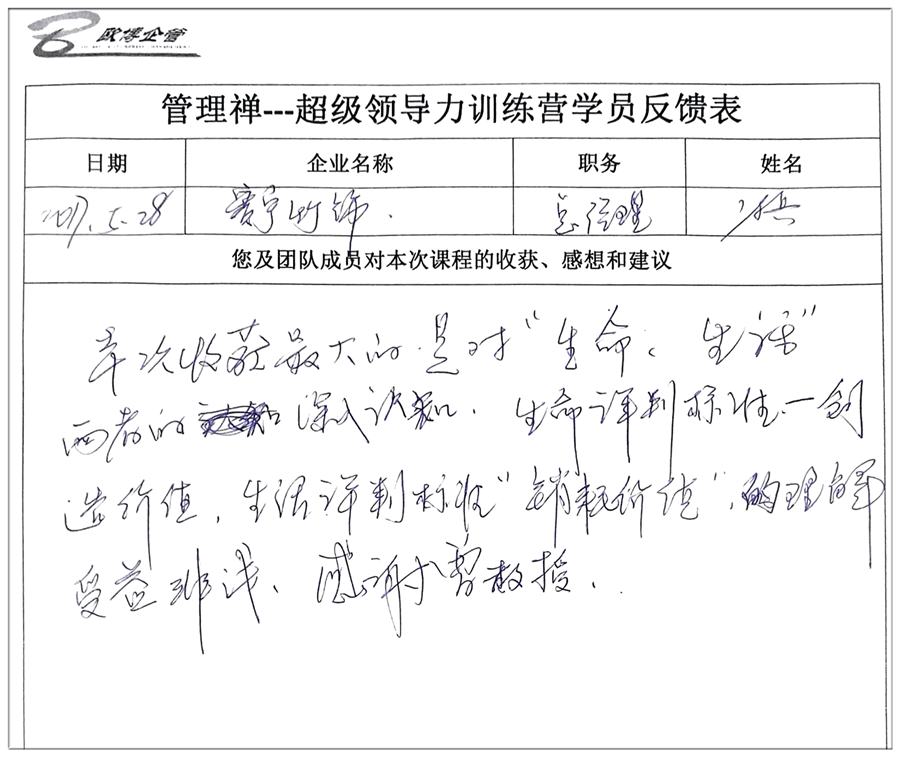 欧博企管
管理禅---超级领导力训练营学员反馈表
日期 企业名称 职务 姓名
2017.5.28 赛宇竹饰. 总经理
您及团队成员对本次课程的收获、感想和建议
本次收获最大的是对“生命、生活”
两者的深入认知. 生命评判标准—创
造价值, 生活评判标准“销耗价值”,的理解
受益非浅、感谢曾教授.